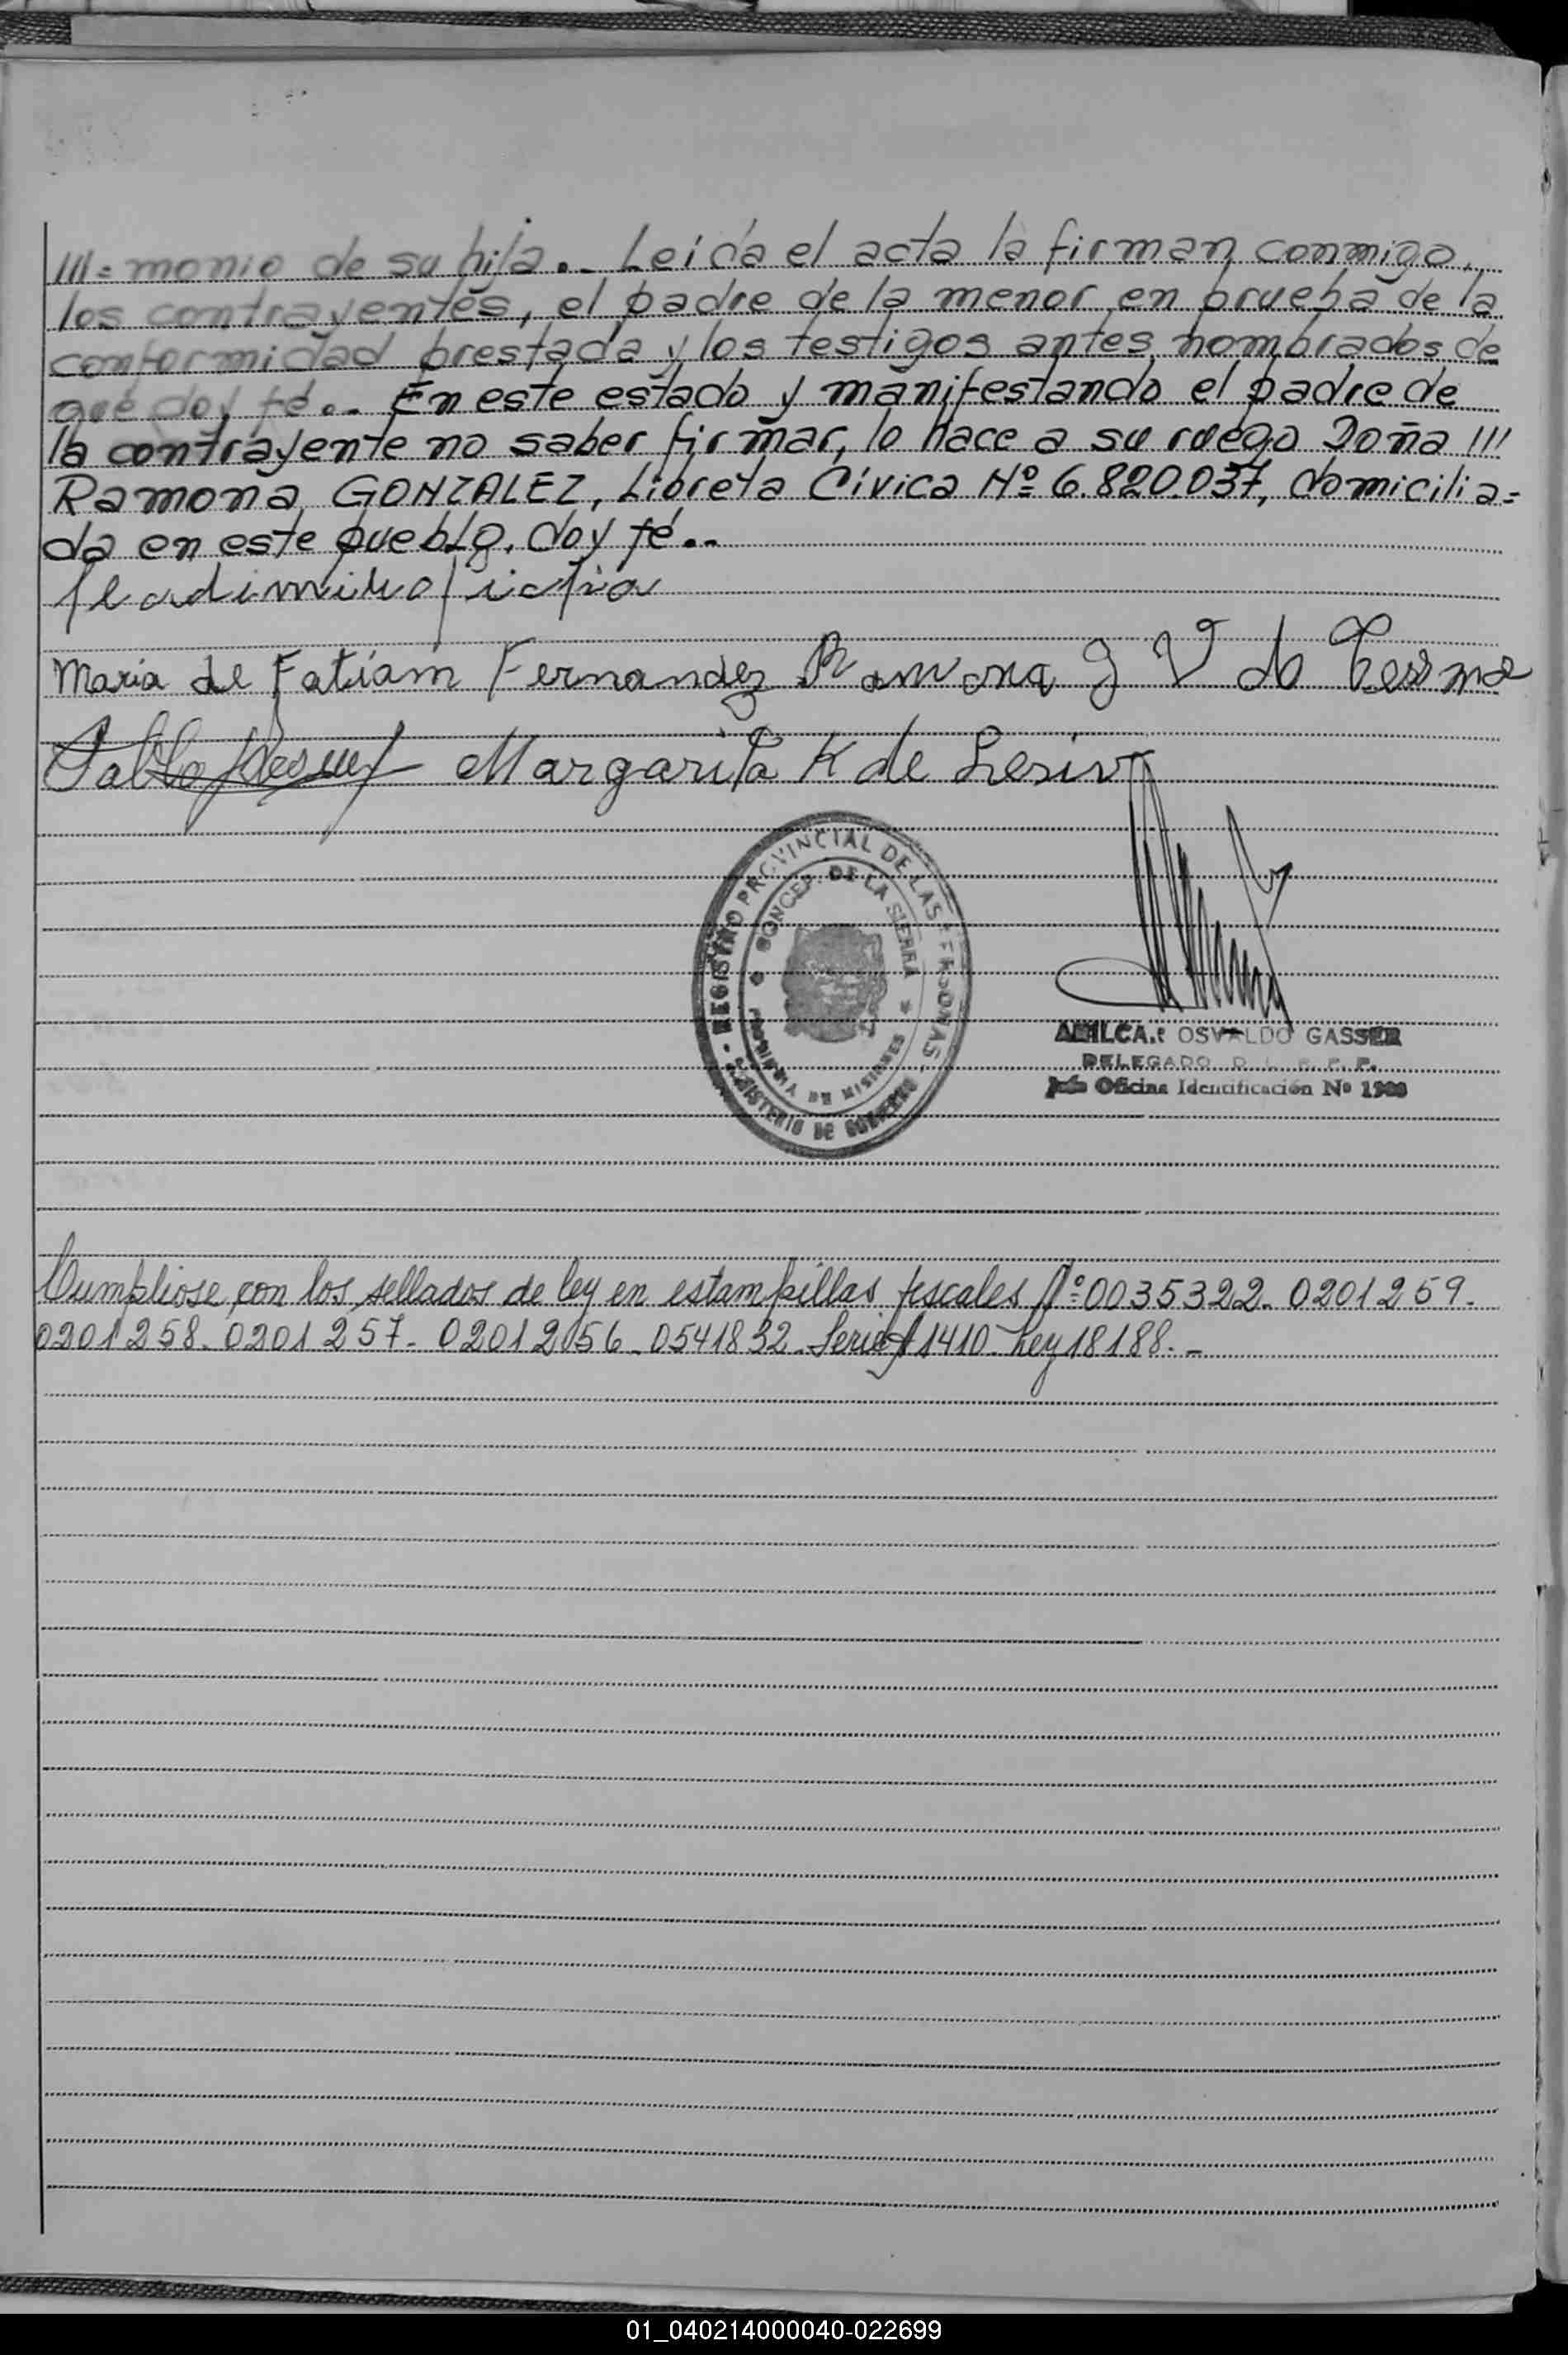 ///=monio de su hija.._ Leída el acta la firman conmigo,
los contrayentes, el padre de la menor en prueba de la
conformidad prestada y los testigos antes nombrados de
que doy fé.._ En este estado y manifestando el padre de
la contrayente no saber firmar, lo hace a su ruego Doña ///
Ramona GONZALEZ, Libreta Cívica Nº 6.820.037, domicilia=
da en este pueblo, doy fé..
Maria de Fatiam Fernandez Ramona G V de
Pablo Margarita K de Lesiv
REGISTRO PROVINCIAL DE LAS PERSONAS - MINISTERIO DE GOBIERNO
CONCEP. DE LA SIERRA * PROVINCIA DE MISIONES
AMILCAR OSVALDO GASSER
DELEGADO D. L. R. P. P.
Jefe Oficina Identificación Nº
Cumpliose con los sellados de ley en estampillas fiscales Nº 0035322- 0201259-
0201258- 0201257- 0201256- 0541832- Serie A 1410- Ley 18188.-
01_040214000040-022699